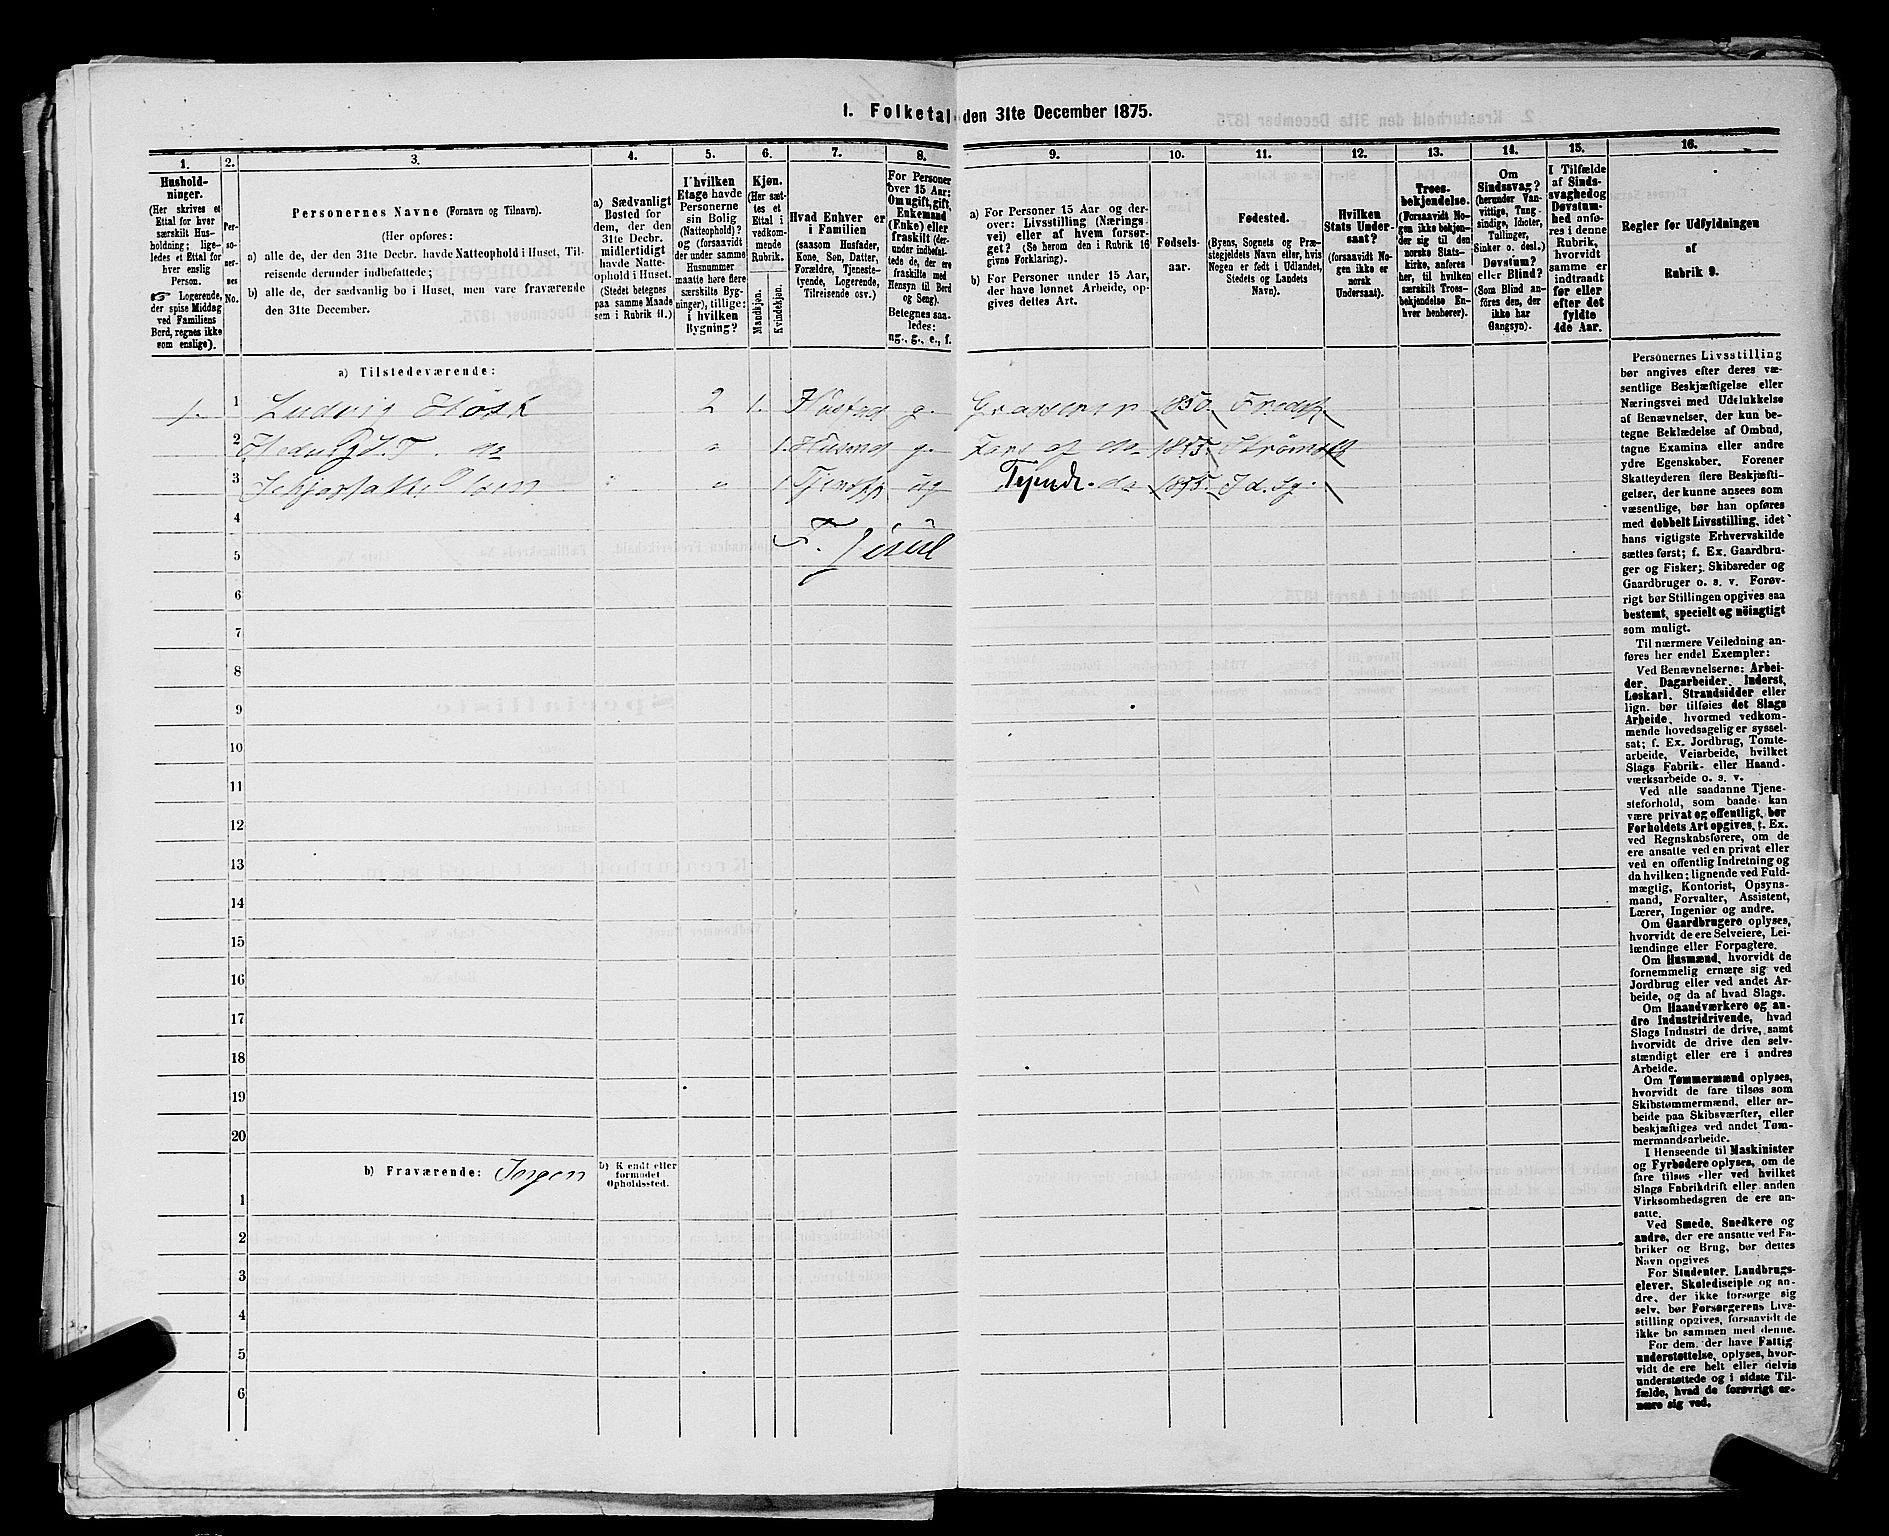 1. Folketal den 31te December 1875.
1.
Husholdninger.
(Her skrives et
Ettal for hver
særskilt Husholdning; ligeledes et Ettal for
hver enslig
Person.
☞ Logerende,
der spise Middag
ved Familiens
Bord, regnes ikke
som enslige).
2.
Personernes
No.
3.
Personernes Navne (Fornavn og Tilnavn).
(Her opføres:
a) alle de, der den 31te Decbr. havde Natteophold i Huset, Tilreisende derunder indbefattede;
b) alle de, der sædvanlig bo i Huset, men vare fraværende
den 31te December.
4.
a) Sædvanligt
Bosted for
dem, der den
31te Decbr.
midlertidigt
havde Natteophold i Huset.
(Stedet betegnes
paa samme Maade
som i Rubrik 11.)
5.
I hvilken
Etage havde
Personerne
sin Bolig
(Natteophold)?
og (forsaavidt
der under samme
Husnummer
maatte høre flere
særskilte Bygninger), tillige:
i hvilken
Bygning?
6.
Kjøn.
(Her sættes et
Ettal i
vedkommende
Rubrik.
Mandkjøn.
Kvindekjøn.
7.
Hvad Enhver er
i Familien
(saasom Husfader,
Kone, Søn, Datter,
Forældre, Tjenestetyende, Logerende,
Tilreisende osv.)
8.
For Personer
over 15 Aar:
Om ugift, gift,
Enkemand
(Enke) eller
fraskilt (derunder indbefattede de, der ere
fraskilte med
Hensyn til Bord
og Seng).
Betegnes saaledes:
ug., g., e., f.
9.
a) For Personer 15 Aar og derover: Livsstilling (Næringsvei) eller af hvem forsørget? (Se herom den i Rubrik 16
givne Forklaring).
b) For Personer under 15 Aar,
der have lønnet Arbeide, opgives dettes Art.
10.
Fødselsaar.
11.
Fødested.
(Byens, Sognets og Præstegjeldets Navn eller, hvis
Nogen er født i Udlandet,
Stedets og Landets
Navn).
12.
Hvilken
Stats Undersaat?
(forsaavidt Nogen ikke er
norsk
Undersaat).
13.
Troesbekjendelse.
(Forsaavidt Nogen ikke bekjender sig til den
norske Statskirke, anføres
her, til hvilken
særskilt Troesbekjendelse Enhver henhører).
14.
Om
Sindssvag?
(herunder Vanvittige, Tungsindige, Idioter,
Tullinger,
Sinker o. desl.)
Døvstum?
eller Blind?
(Som Blind anføres den, der
ikke har
Gangsyn).
15.
I Tilfælde
af Sindssvaghed og
Døvstumhed anføres i denne
Rubrik,
hvorvidt
samme er
indtraadt
før eller
efter det
fyldte
4de Aar.
16.
Regler for Udfyldningen
af
Rubrik 9.
a) Tilstedeværende:
1. 1 Ludvig Høsk 2 1. g. 1850
2 do „ 1. g. do 1845
3 „ 1. ug Tyende do
4
5
6
7
8
9
10
11
12
13
14
15
16
17
18
19
20
b) Fraværende: Ingen
b) Kjendt eller
formodet
Opholdssted.
1
2
3
4
5
6
Personernes Livsstilling
bør angives efter deres væsentlige Beskjæftigelse eller
Næringsvei med Udelukkelse
af Benævnelser, der kun betegne Beklædelse af Ombud,
tagne Examina eller andre
ydre Egenskaber. Forener
Skatteyderen flere Beskjæftigelser, der kunne ansees som
væsentlige, bør han opføres
med dobbelt Livsstilling, idet
hans vigtigste Erhvervskilde
sættes først; f. Ex. Gaardbruger og Fisker; Skibsreder og
Gaardbruger o. s. v. Forøvrigt bør Stillingen opgives saa
bestemt, specielt og nöiagtigt
som muligt.
Til nærmere Veiledning anføres her endel Exempler:
Ved Benævnelserne: Arbeider, Dagarbeider, Inderst,
Løskarl, Strandsidder eller
lign. bør tilføies det Slags
Arbeide, hvormed vedkommende hovedsagelig er sysselsat; f. Ex. Jordbrug, Tomtearbeide, Veiarbeide, hvilket
Slags Fabrik- eller Haandværksarbeide o. s. v.
Ved alle saadanne Tjenesteforhold, som baade kan
være privat og offentligt, bør
Forholdets Art opgives, f. Ex.
ved Regnskabsførere, om de
ere ansatte ved en privat eller
ved en offentlig Indretning og
da hvilken; lignende ved Fuldmægtig, Kontorist, Opsynsmand, Forvalter, Assistent,
Lærer, Ingeniør og andre.
Om Gaardbrugere oplyses,
hvorvidt de ere Selveiere, Leilændinge eller Forpagtere.
Om Husmænd, hvorvidt de
fornemmelig ernære sig ved
Jordbrug eller ved andet Arbeide, og da af hvad Slags.
Om Haandværkere og andre Industridrivende, hvad
Slags Industri de drive, samt
hvorvidt de drive den selvstændigt eller ere i andres
Arbeide.
Om Tømmermænd oplyses,
hvorvidt de fare tilsøs som
Skibstømmermænd, eller arbeide paa Skibsværfter, eller
beskjæftiges ved andet Tømmermandsarbeide.
I Henseende til Maskinister
og Fyrbødere oplyses, om de
fare tilsøs eller ved hvilket
Slags Fabrikdrift eller anden
Virksomhedsgren de ere ansatte.
Ved Smede, Snedkere og
andre, der ere ansatte ved Fabriker og Brug, bør dettes
Navn opgives
For Studenter, Landbrugselever, Skoledisciple og andre, der ikke forsørge sig
selv, bør Forsørgerens Livsstilling opgives, forsaavidt de
ikke bo sammen med denne.
For dem, der have Fattigunderstøttelse, oplyses, hvorvidt de ere helt eller delvis
understøttede og i sidste Tilfælde, hvad de forøvrigt ernære sig ved.